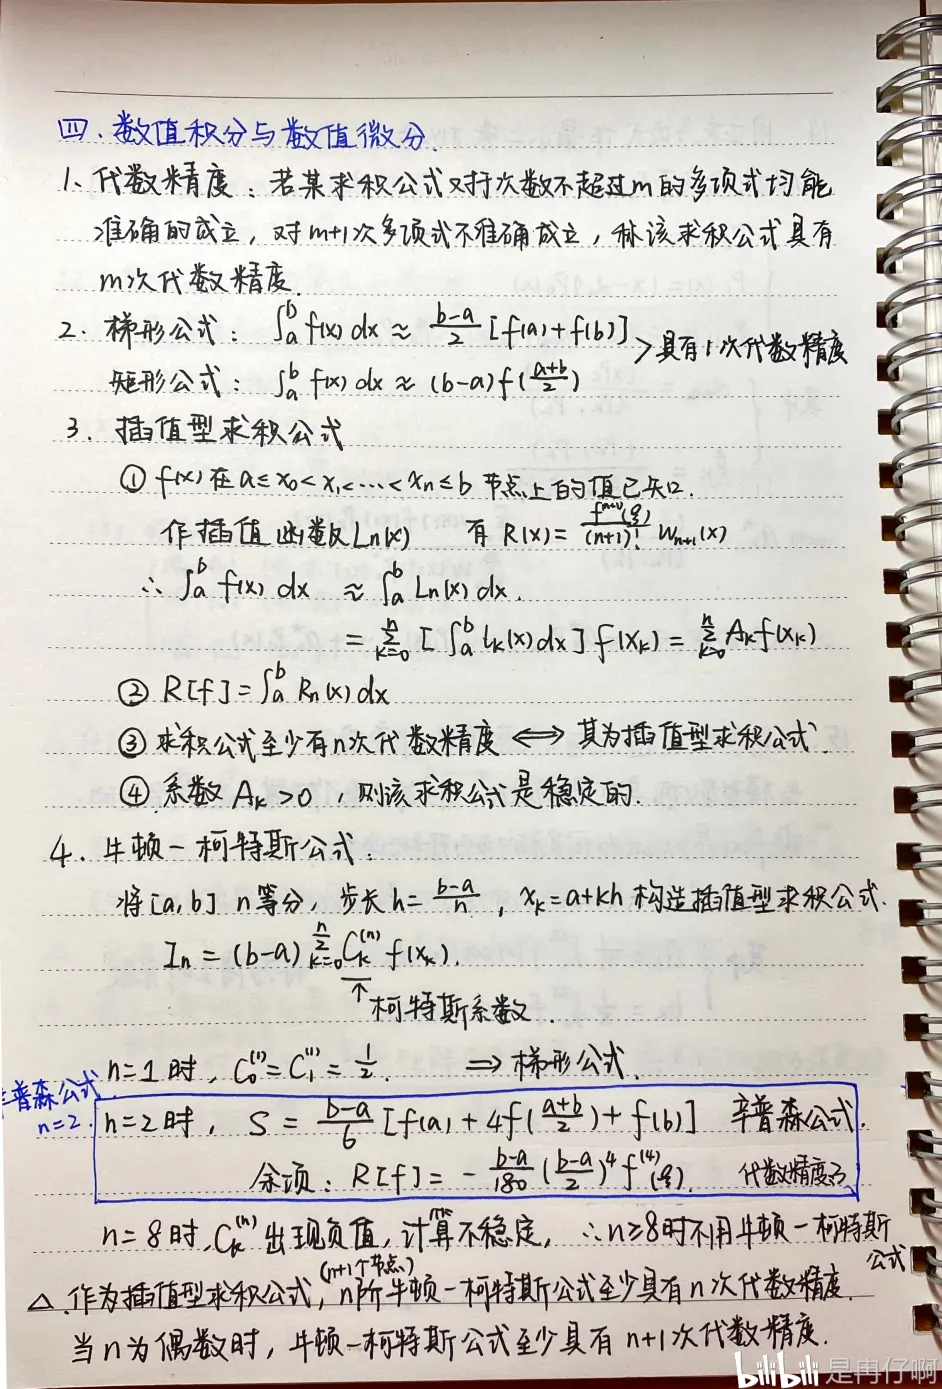 四、数值积分与数值微分.
1、代数精度：若某求积公式对于次数不超过m的多项式均能
准确的成立，对m+1次多项式不准确成立，称该求积公式具有
m次代数精度.
2. 梯形公式：∫_a^b f(x)dx ≈ (b-a)/2 [f(a)+f(b)]
矩形公式：∫_a^b f(x)dx ≈ (b-a)f((a+b)/2)
> 具有1次代数精度
3. 插值型求积公式
① f(x)在a≤x₀<x₁<…<xₙ≤b 节点上的值已知.
作插值函数Ln(x) 有R(x)= f^(n+1)(ξ)/(n+1)! W_{n+1}(x)
∴ ∫_a^b f(x)dx ≈ ∫_a^b Ln(x)dx.
= Σ_{k=0}^n [∫_a^b l_k(x)dx] f(x_k) = Σ_{k=0}^n A_k f(x_k)
② R[f]=∫_a^b Rn(x)dx
③ 求积公式至少有n次代数精度 ⟺ 其为插值型求积公式.
④ 系数 A_k>0，则该求积公式是稳定的.
4. 牛顿-柯特斯公式：
将[a,b] n等分，步长h=(b-a)/n，x_k=a+kh 构造插值型求积公式.
In = (b-a) Σ_{k=0}^n C_k^(n) f(x_k).
↑柯特斯系数.
n=1时，C₀^(1)=C₁^(1)=1/2. ⇒ 梯形公式.
辛普森公式.
n=2.
n=2时，S = (b-a)/6 [f(a)+4f((a+b)/2)+f(b)] 辛普森公式.
余项：R[f]= -(b-a)/180 ((b-a)/2)^4 f^(4)(ξ). 代数精度3
n=8时，C_k^(n)出现负值，计算不稳定，∴n≥8时不用牛顿-柯特斯
公式
(n+1个节点)
△.作为插值型求积公式，n阶牛顿-柯特斯公式至少具有n次代数精度.
当n为偶数时，牛顿-柯特斯公式至少具有n+1次代数精度.
bilibili 是冉仔啊